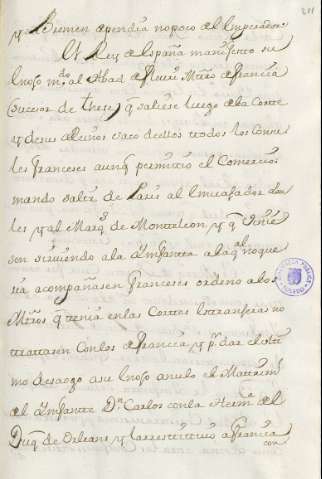 211
y Bremen ofendia no poco al Emperador
El Rey de España manifesto su
enojo mdo al Abad de Ministro de Francia
(sucesor de these) q saliese luego de la Corte
y de sus Reinos saco de ellos todos los Consu
les franceses aunq permitio el Comercio
mando salir de Paris al Embajador
y al Marqs de Monteleon, y q
son sirviendo a la Ynfanta a la qal no que
ria acompañasen franceses ordeno a los
Mtros q tenia en las Cortes Extranjeras no
tratasen con los de Francia y pa dar el ulti
mo desaogo a su enojo anulo el Matrim
del Ynfante Dn Carlos con la Herma del
Duq de Orleans y la restituyo a Francia
con